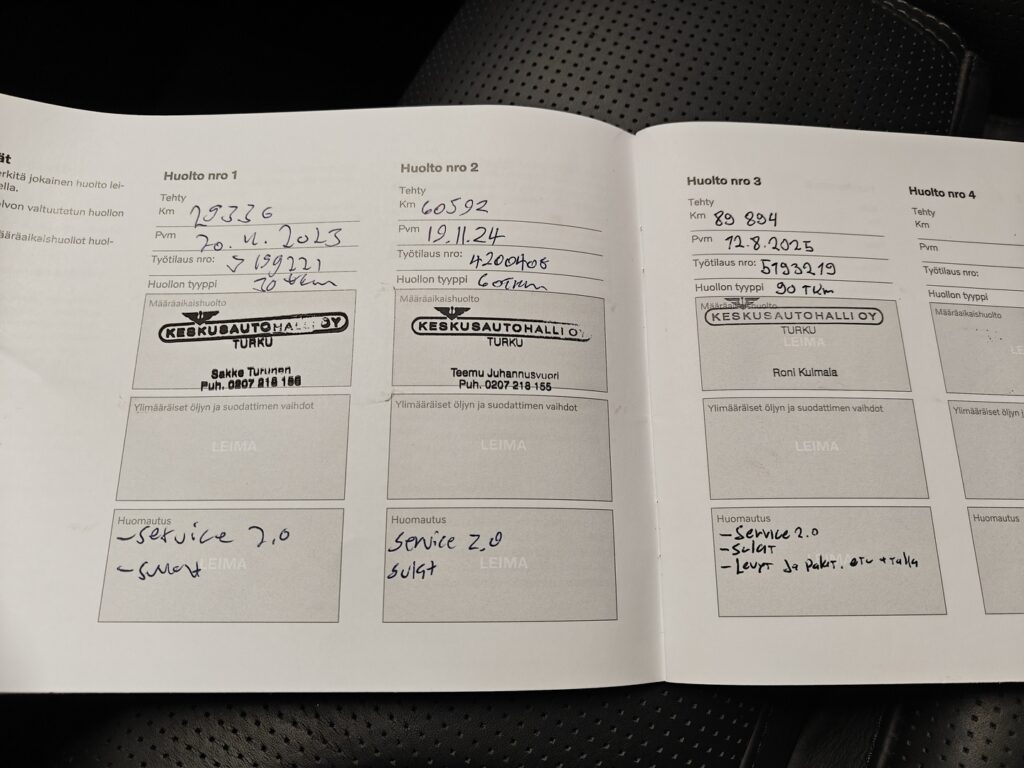 ät
erkitä jokainen huolto lei-
ella.
elvon valtuutetun huollon
ääräaikaishuollot huol-
Huolto nro 1
Tehty
Km 29336
Pvm 20.11.2023
Työtilaus nro: 5199221
Huollon tyyppi 30 tkm
Määräaikaishuolto
KESKUSAUTOHALLI OY
TURKU
Sakke Turunen
Puh. 0207 218 166
Ylimääräiset öljyn ja suodattimen vaihdot
LEIMA
Huomautus
- Service 2.0
LEIMA
- sulat
Huolto nro 2
Tehty
Km 60592
Pvm 19.11.24
Työtilaus nro: 4200408
Huollon tyyppi 60TKm
Määräaikaishuolto
KESKUSAUTOHALLI OY
TURKU
Teemu Juhannusvuori
Puh. 0207 218 155
Ylimääräiset öljyn ja suodattimen vaihdot
LEIMA
Huomautus
Service 2.0
LEIMA
sulat
Huolto nro 3
Tehty
Km 89 894
Pvm 12.8.2025
Työtilaus nro: 5193219
Huollon tyyppi 90 TKm
Määräaikaishuolto
KESKUSAUTOHALLI OY
TURKU
LEIMA
Roni Kulmala
Ylimääräiset öljyn ja suodattimen vaihdot
LEIMA
Huomautus
- Service 2.0
- Sulat
LEIMA
- Levyt Ja Palat. etu + taka
Huolto nro 4
Tehty
Km
Pvm
Työtilaus nro:
Huollon tyyppi
Määräaikaishuolto
Ylimääräiset öljyn ja
Huomautus